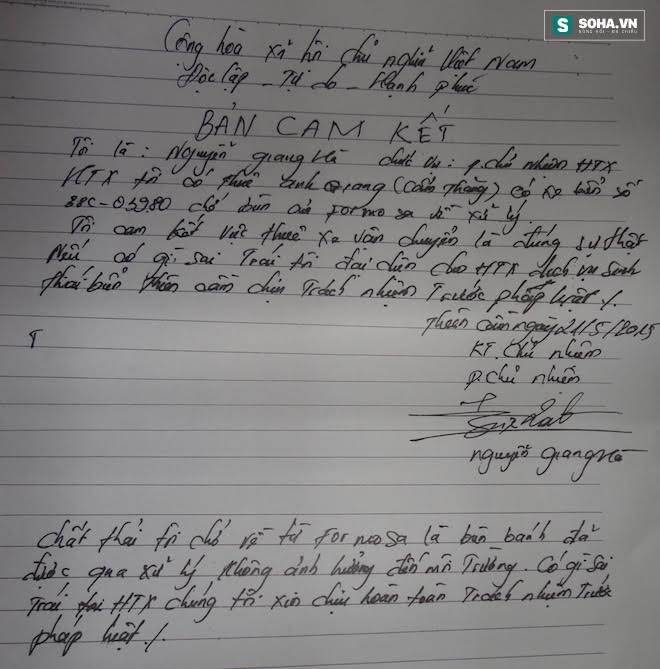 SOHA.VN
Cộng hòa xã hội chủ nghĩa Việt Nam
Độc lập - Tự do - Hạnh phúc
BẢN CAM KẾT
Tôi là: Nguyễn giang Hà chức vụ: p.chủ nhiệm HTX
HTX tôi có thuê anh Quang (Cẩm Thăng) có xe biển số
38C-03980 chở bùn của Formosa về xử lý.
Tôi cam kết việc thuê xe vận chuyển là đúng sự thật
Nếu có gì sai Trái tôi đại diện cho HTX dịch vụ sinh
thái biển thiên cầm chịu Trách nhiệm Trước pháp luật /.
Thiên Cầm ngày 21/5/2015
KT. Chủ nhiệm
p.chủ nhiệm
nguyễn giang Hà
T
Chất thải tôi chở về từ Formosa là bùn bánh đã
được qua xử lý không ảnh hưởng đến môi Trường. Có gì sai
Trái HTX chúng tôi xin chịu hoàn toàn Trách nhiệm Trước
pháp luật /.